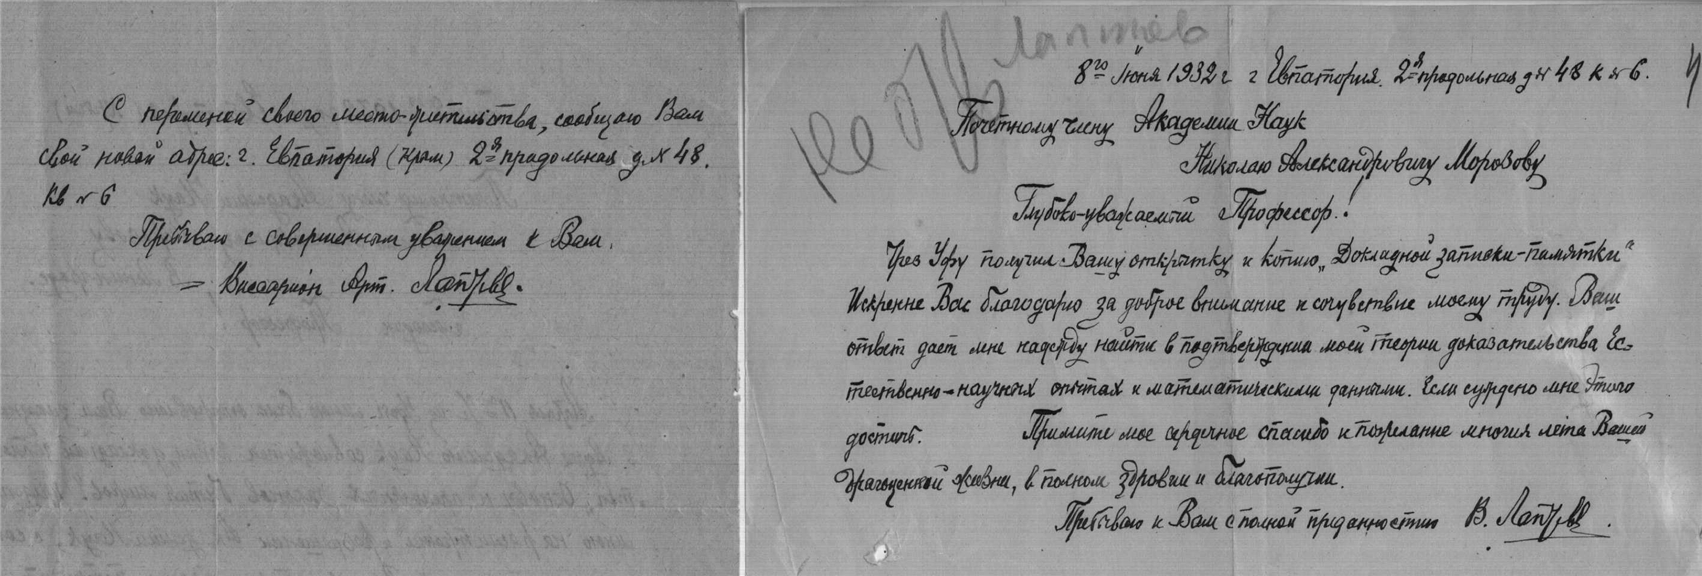 С переменой своего место-жительства, сообщаю Вам
свой новый адрес: г. Евпатория (Крым) 2ая продольная д. № 48.
кв № 6
Пребываю с совершенным уважением к Вам.
= Виссарiон Арт. Лаптев.
Лаптев
8го Iюня 1932 г г Евпатория. 2ая продольная д № 48 к № 6.
Почетному члену Академии Наук
Николаю Александровичу Морозову
Глубоко-уважаемый Профессор!
Чрез Уфу получил Вашу открытку и копию „Докладной записки-памятки"
Искренне Вас благодарю за доброе внимание и сочувствие моему труду. Ваш
ответ дает мне надежду найти в подтверждении моей теории доказательства Ес-
тественно-научных опытах и математическими данными. Если суждено мне этого
достичь. Примите мое сердечное спасибо и пожелание многия лета Вашей
драгоценной жизни, в полном здровии и благополучии.
Пребываю к Вам с полной преданностию В. Лаптев.